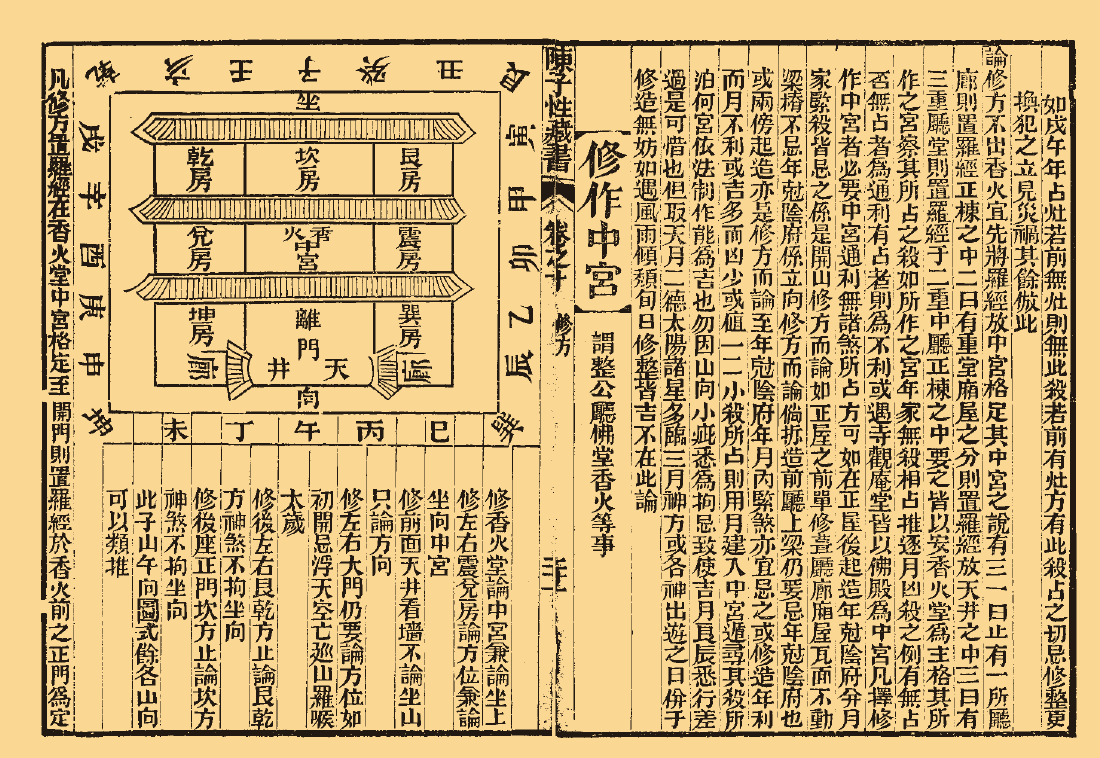 如戊午年占灶若前無灶則無此殺若前有灶方有此殺占之切忌修整更
換犯之立見災禍其餘倣此
論修方不出香火宜先將羅經放中宮格定其中宮之說有三一曰止有一所廳
廊則置羅經正棟之中二曰有重堂廟屋之分則置羅經放天井之中三曰有
三重廳堂則置羅經于二重中廳正棟之中要之皆以安香火堂為主格其所
作之宮察其所占之殺如所作之宮年家無殺相占推逐月凶殺之例有無占
否無占者為通利有占者則為不利或遇寺觀庵堂皆以佛殿為中宮凡擇修
作中宮者必要中宮通利無諸煞所占方可如在正屋後起造年尅陰府分月
家緊殺皆忌之係是開山修方而論如正屋之前單修葺廳廊廂屋瓦面不動
梁樁不忌年尅陰府係立向修方而論倘拆造前廳上梁仍要忌年尅陰府也
或兩傍起造亦是修方而論至年尅陰府年月內緊煞亦宜忌之或修造年利
而月不利或吉多而凶少或値一二小殺所占則用月建入中宮遁尋其殺所
泊何宮依法制作能為吉也勿因山向小疵悉為拘忌致使吉月良辰悉行差
過是可惜也但取天月二德太陽諸星多臨三月神方或各神出遊之日併于
修造無妨如遇風雨傾頹旬日修整皆吉不在此論
修作中宮
謂整公廳佛堂香火等事
陳子性藏書
卷之十
修方
三十三
乾 亥 壬 子 癸 丑 艮
坐
戌 辛 酉 庚 申
寅 甲 卯 乙 辰
乾房 坎房 艮房
兌房 香火中宮 震房
坤房 離門 巽房
廊 天井 廊
向
坤 未 丁 午 丙 巳 巽
修香火堂論中宮兼論坐上
修左右震兌房論方位兼論
坐向中宮
修前面天井看墻不論坐山
只論方向
修左右大門仍要論方位如
初開忌浮天空亡巡山羅睺
太歲
修後左右艮乾方止論艮乾
方神煞不拘坐向
修後座正門坎方止論坎方
神煞不拘坐向
此子山午向圖式餘各山向
可以類推
凡修方置羅經在香火堂中宮格定至開門則置羅經於香火前之正門為定